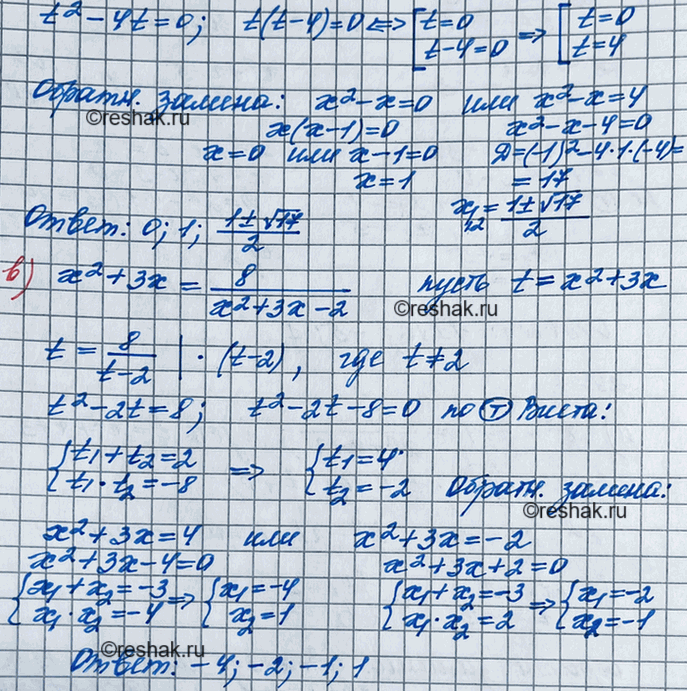 t² - 4t = 0; t(t-4) = 0 <=> [t=0 => [t=0
t-4=0 t=4
Обратн. замена: x²-x=0 или x²-x=4
©reshak.ru
x(x-1)=0 x²-x-4=0
x=0 или x-1=0 D=(-1)²-4·1·(-4)=
x=1 =17
Ответ: 0; 1; (1±√17)/2 x₁,₂ = (1±√17)/2
в) x²+3x = 8/(x²+3x-2) пусть t = x²+3x
©reshak.ru
t = 8/(t-2) | · (t-2), где t≠2
t²-2t=8; t²-2t-8=0 по Ⓣ Виета:
{t₁+t₂=2 => {t₁=4
t₁·t₂=-8 t₂=-2 Обратн. замена:
©reshak.ru
x²+3x=4 или x²+3x=-2
x²+3x-4=0 x²+3x+2=0
{x₁+x₂=-3 => {x₁=-4 {x₁+x₂=-3 => {x₁=-2
x₁·x₂=-4 x₂=1 x₁·x₂=2 x₂=-1
©reshak.ru
Ответ: -4; -2; -1; 1